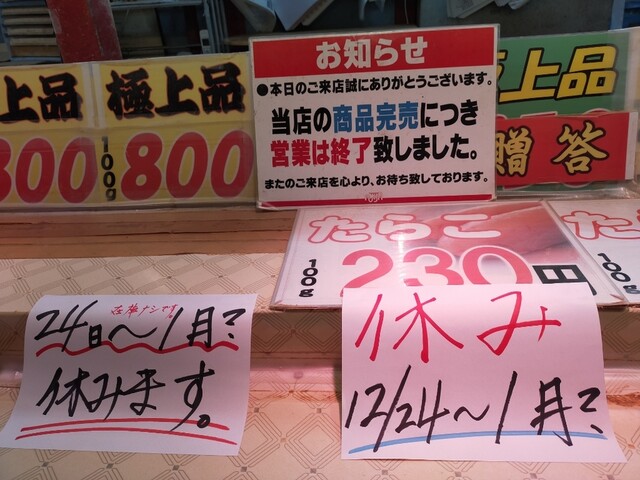 極上品
800
極上品
100g
800
お知らせ
●本日のご来店誠にありがとうございます。
当店の商品完売につき
営業は終了致しました。
またのご来店を心より、お待ち致しております。
上品
贈答
たらこ
100g
230円
た
100g
在庫ナシです
24日〜1月?
休みます。
休み
12/24〜1月?